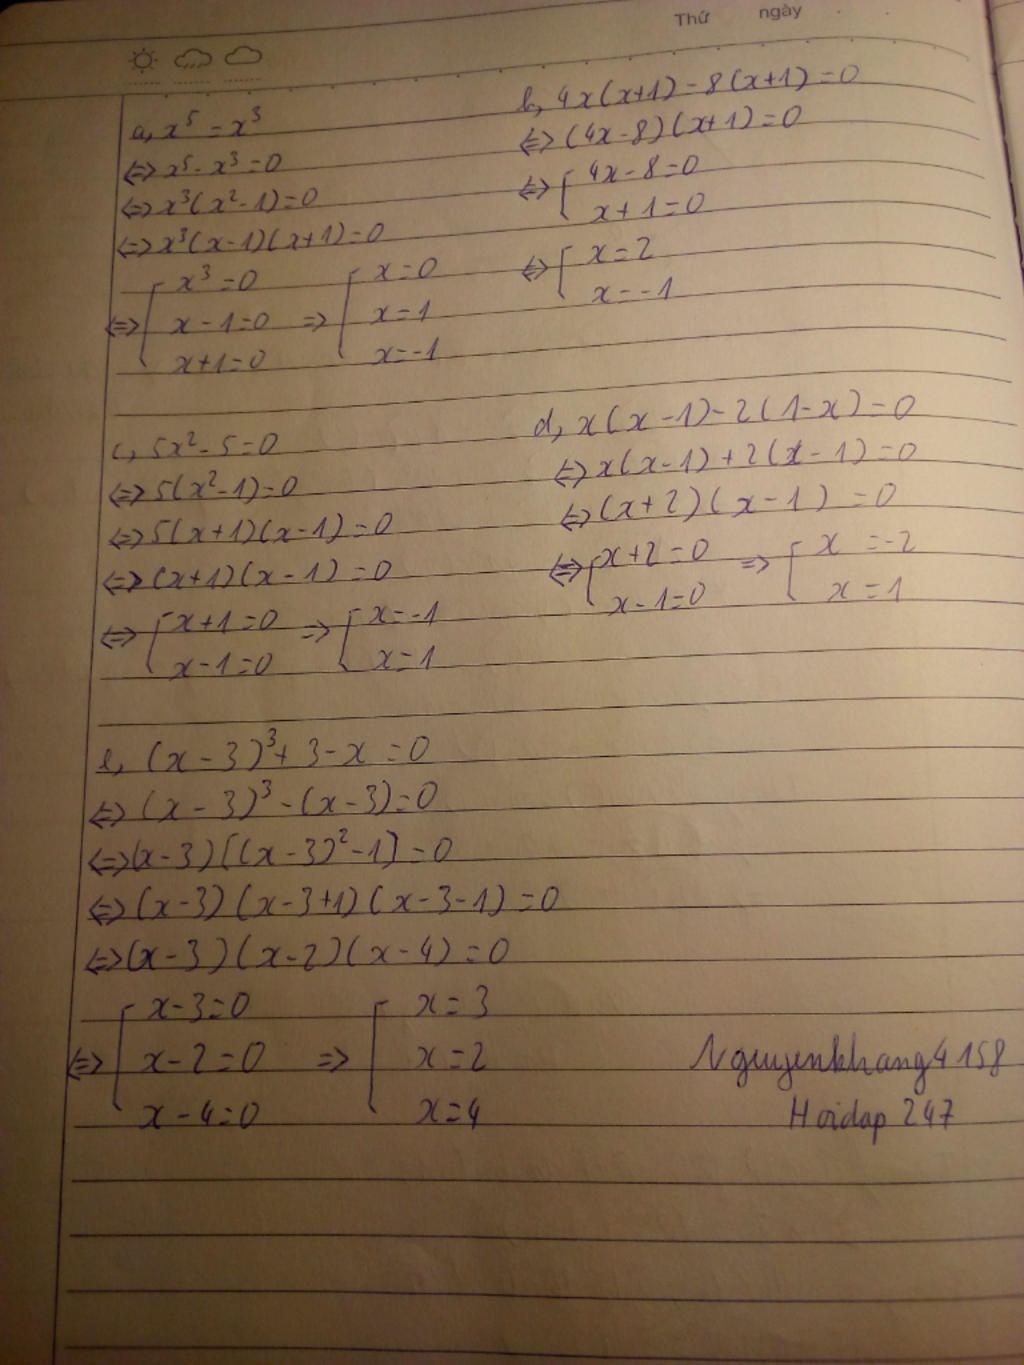 Thứ ngày
a, x⁵ = x³
⇔ x⁵ - x³ = 0
⇔ x³(x² - 1) = 0
⇔ x³(x - 1)(x + 1) = 0
⇔ [ x³ = 0 ⇒ [ x = 0
x - 1 = 0 x = 1
x + 1 = 0 x = -1
b, 4x(x+1) - 8(x+1) = 0
⇔ (4x - 8)(x+1) = 0
⇔ [ 4x - 8 = 0
x + 1 = 0
⇔ [ x = 2
x = -1
c, 5x² - 5 = 0
⇔ 5(x² - 1) = 0
⇔ 5(x+1)(x-1) = 0
⇔ (x+1)(x-1) = 0
⇔ [ x + 1 = 0 ⇒ [ x = -1
x - 1 = 0 x = 1
d, x(x-1) - 2(1-x) = 0
⇔ x(x-1) + 2(x-1) = 0
⇔ (x+2)(x-1) = 0
⇔ [ x + 2 = 0 ⇒ [ x = -2
x - 1 = 0 x = 1
e, (x-3)³ + 3 - x = 0
⇔ (x-3)³ - (x-3) = 0
⇔ (x-3)[(x-3)² - 1] = 0
⇔ (x-3)(x-3+1)(x-3-1) = 0
⇔ (x-3)(x-2)(x-4) = 0
⇔ [ x - 3 = 0 ⇒ [ x = 3
x - 2 = 0 x = 2
x - 4 = 0 x = 4
Nguyenkhang4158
Hoidap 247